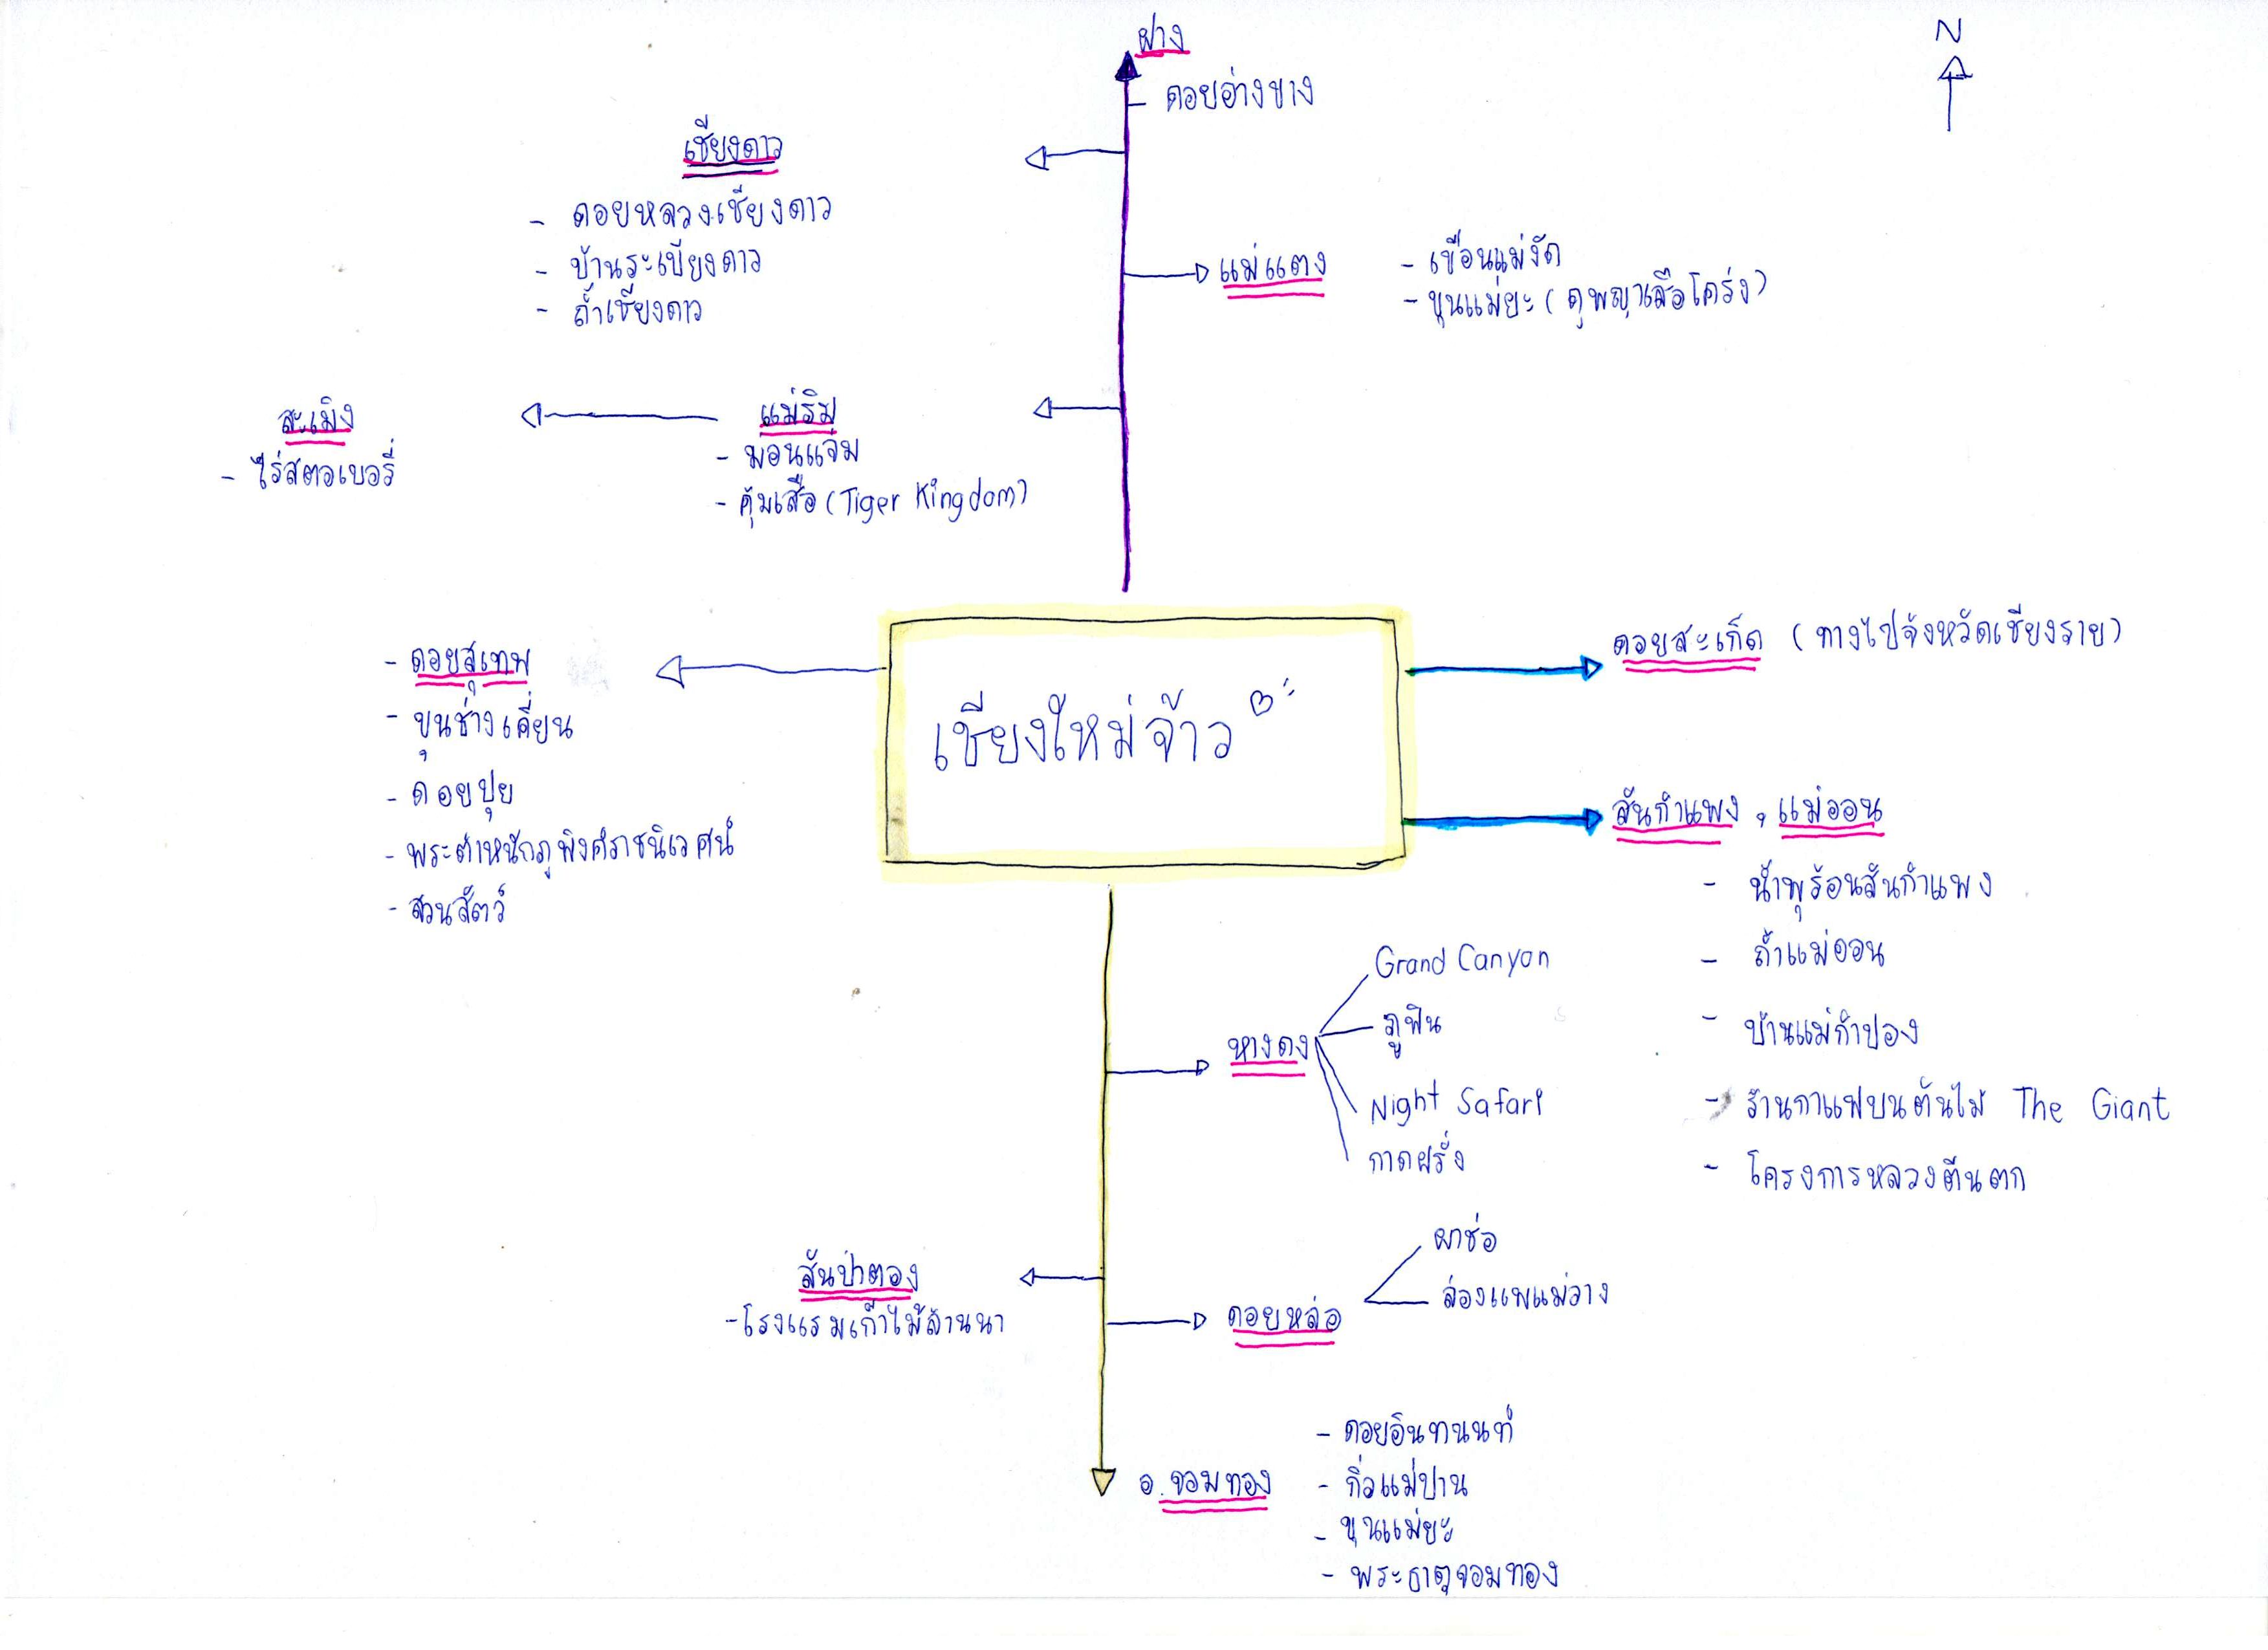 N
ฝาง
ดอยอ่างขาง
เชียงดาว
- ดอยหลวงเชียงดาว
- บ้านระเบียงดาว
- ถ้ำเชียงดาว
แม่แตง
- เขื่อนแม่งัด
- ขุนแม่ยะ (ดูพญาเสือโคร่ง)
สะเมิง
- ไร่สตอเบอรี่
แม่ริม
- มอนแจ่ม
- คุ้มเสือ (Tiger Kingdom)
- ดอยสุเทพ
- ขุนช่างเคี่ยน
- ดอยปุย
- พระตำหนักภูพิงค์ราชนิเวศน์
- สวนสัตว์
เชียงใหม่จ้าว
ดอยสะเก็ด (ทางไปจังหวัดเชียงราย)
สันกำแพง , แม่ออน
- น้ำพุร้อนสันกำแพง
- ถ้ำแม่ออน
- บ้านแม่กำปอง
- ร้านกาแฟบนต้นไม้ The Giant
- โครงการหลวงตีนตก
หางดง
Grand Canyon
ภูฟิน
Night Safari
กาดฝรั่ง
สันป่าตอง
- โรงแรมเก๊าไม้ล้านนา
ดอยหล่อ
ผาช่อ
ล่องแพแม่วาง
อ. จอมทอง
- ดอยอินทนนท์
- กิ่วแม่ปาน
- ขุนแม่ยะ
- พระธาตุจอมทอง